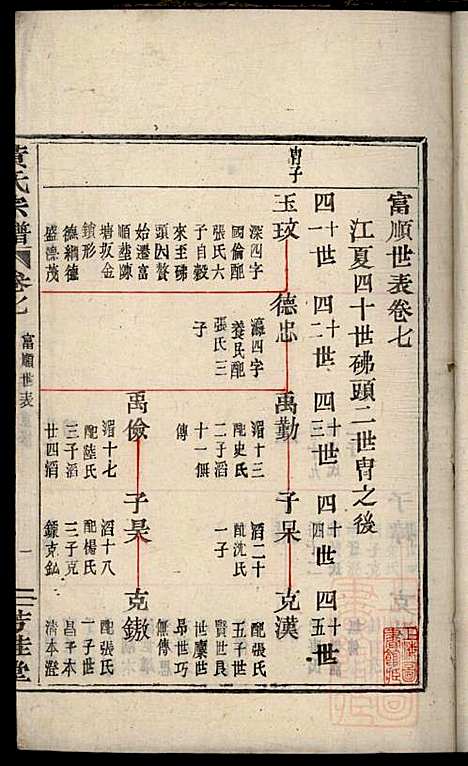 富順世表卷七
江夏四十世砩頭二世冑之後
四十一世
四十二世
四十三世
四十四世
四十五世
冑子
玉玟
深四字
國倫配
張氏六
子自穀
來至砩
頭因贅
始遷富
順墊陳
塝坂金
鎖形
德綱德
盛濠茂
德忠
瀛四字
養民配
張氏三
子
禹勤
湄十三
配史氏
二子滔
十一無
傳
子杲
滔二十
配沈氏
一子
克漢
配張氏
五子世
賢世良
世麋世
昂世巧
無傳
禹儉
湄十七
配陸氏
三子滔
廿四滔
子昊
滔十八
配楊氏
三子克
鎳克鈜
克鏾
配張氏
一子世
昌子本
清本澄
黃氏宗譜
卷七
富順世表
一
芳桂堂